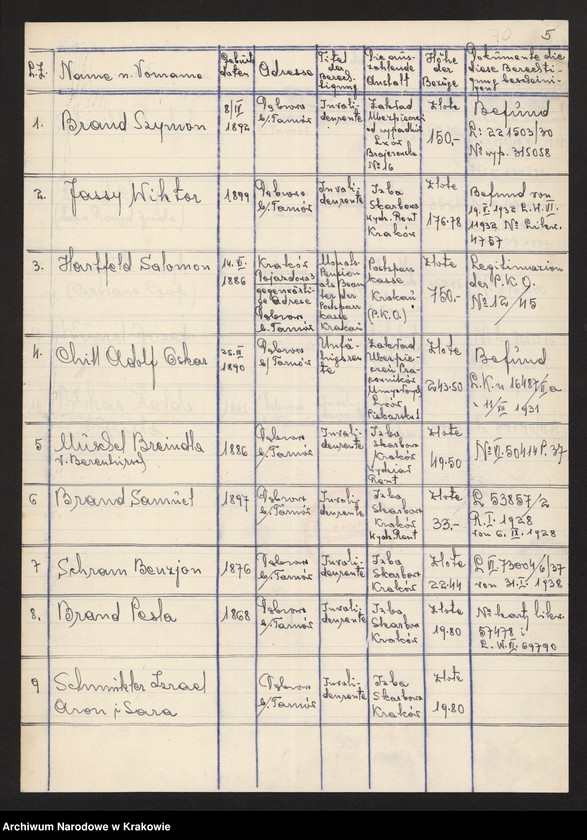 5
L.Z. Name u. Vorname Geburts daten Adresse Titel der Berech- tigung Die aus- zahlende Anstalt Höhe der Bezüge Dokumente die diese Berechti-
1. Brand Szymon 8/IV 1892 Dąbrowa b/Tarnów Invali- denrente Zakład Ubezpieczeń od wypadków Lwów № 16 Złote 150,- Befund L: 221503/30 № wyp. 315058
2. Jassy Wiktor 1899 Dąbrowa b/Tarnów Invali- denrente Izba Skarbowa Wydz. Rent Kraków Złote 176.78 Befund von 1932 № 4757
3. Hartfeld Salomon 14. VI 1886 Kraków gegenwärti- ge Adrese Dąbrowa b. Tarnów Monats Pension als Beam- ter der Postspar kasse Krakau Postspar kasse Krakau (P.K.O.) Złote 750.- Legitimazion der P.K.O. № 12/45
4. Chill Adolf Oskar 1890 Dąbrowa b/Tarnów Zakład Ubezpie- czeń Pra- cowników Lwów, Złote 243.50 Befund 1931
5 Breindla 1886 Dąbrowa b/Tarnów Invali- denrente Izba Skarbowa Kraków Wydział Rent Złote 49.50 № VI. 50414 P. 37
6 Brand Samuel 1897 Dąbrowa b/Tarnów Invali- denrente Izba Skarbowa Kraków Wydz. Rent Złote 33.- L 53857/2 R.I. 1928 von 6. IX. 1928
7 Schram Benzjon 1876 Dąbrowa b/Tarnów Invali- denrente Izba Skarbowa Kraków Złote 22.44 von 31. I. 1938
8. Brand Pesla 1868 Dąbrowa b/Tarnów Invali- denrente Izba Skarbowa Kraków Złote 19.80 № karty likw. 57478 i L.W.II. 69790
9 Izrael Dąbrowa b/Tarnów Invali- denrente Izba Skarbowa Kraków Złote 19.80
Aron i Sara
Archiwum Narodowe w Krakowie